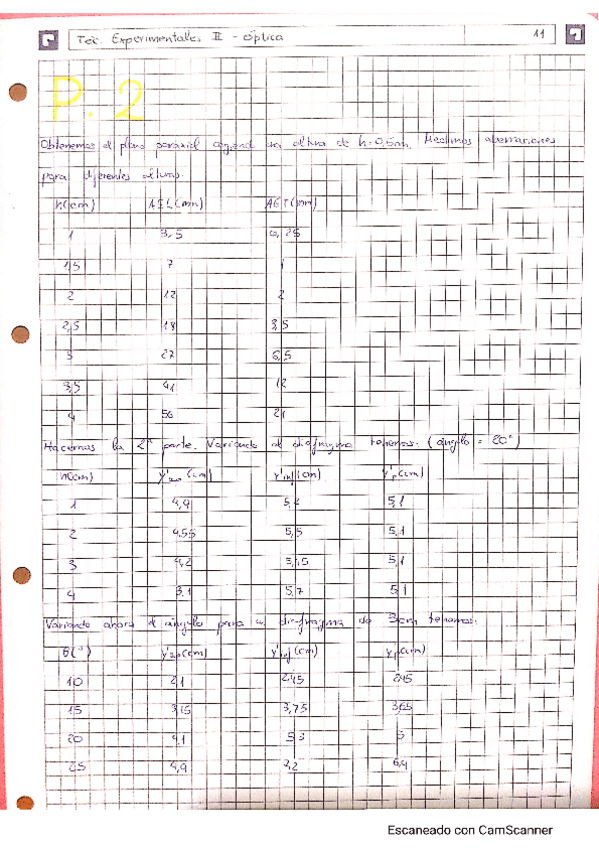 Téc. Experimentales II - Óptica 11
P.2
Obtenemos el plano paraxial cogiendo una altura de h=0,5cm. Medimos aberraciones
para diferentes alturas
h(cm) AEL(mm) AET(mm)
1 3,5 0,25
1,5 7 1
2 12 2
2,5 18 3,5
3 27 6,5
3,5 41 12
4 56 21
Hacemos la 2ª parte. Variando el diafragma tenemos. (ángulo = 20°)
h(cm) y'sup (cm) y'inf (cm) y'p (cm)
1 4,9 5,4 5,1
2 4,55 5,5 5,1
3 4,2 5,1
4 3,1 5,7 5,1
Variando ahora el ángulo para un diafragma de 3cm tenemos.
θ(°) y'sup(cm) y'inf (cm) y'p(cm)
10 2,1 2,45 2,45
15 3,15 3,75 3,65
20 4,1 5,3 5
25 4,9 6,4
Escaneado con CamScanner